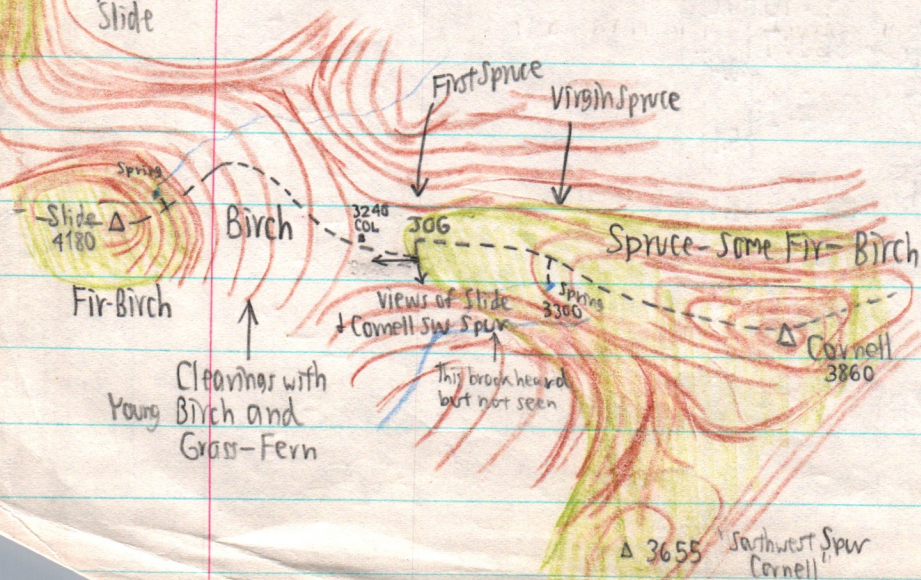 Slide
First Spruce
Virgin Spruce
Spring
Slide
4180
Birch
3240
COL
JOG
Spruce-Some Fir-Birch
Fir-Birch
Views of Slide
+ Cornell SW Spur
Spring
3300
Cornell
3860
Clearings with
Young Birch and
Grass-Fern
This brook heard
but not seen
3655
"Southwest Spur
Cornell"